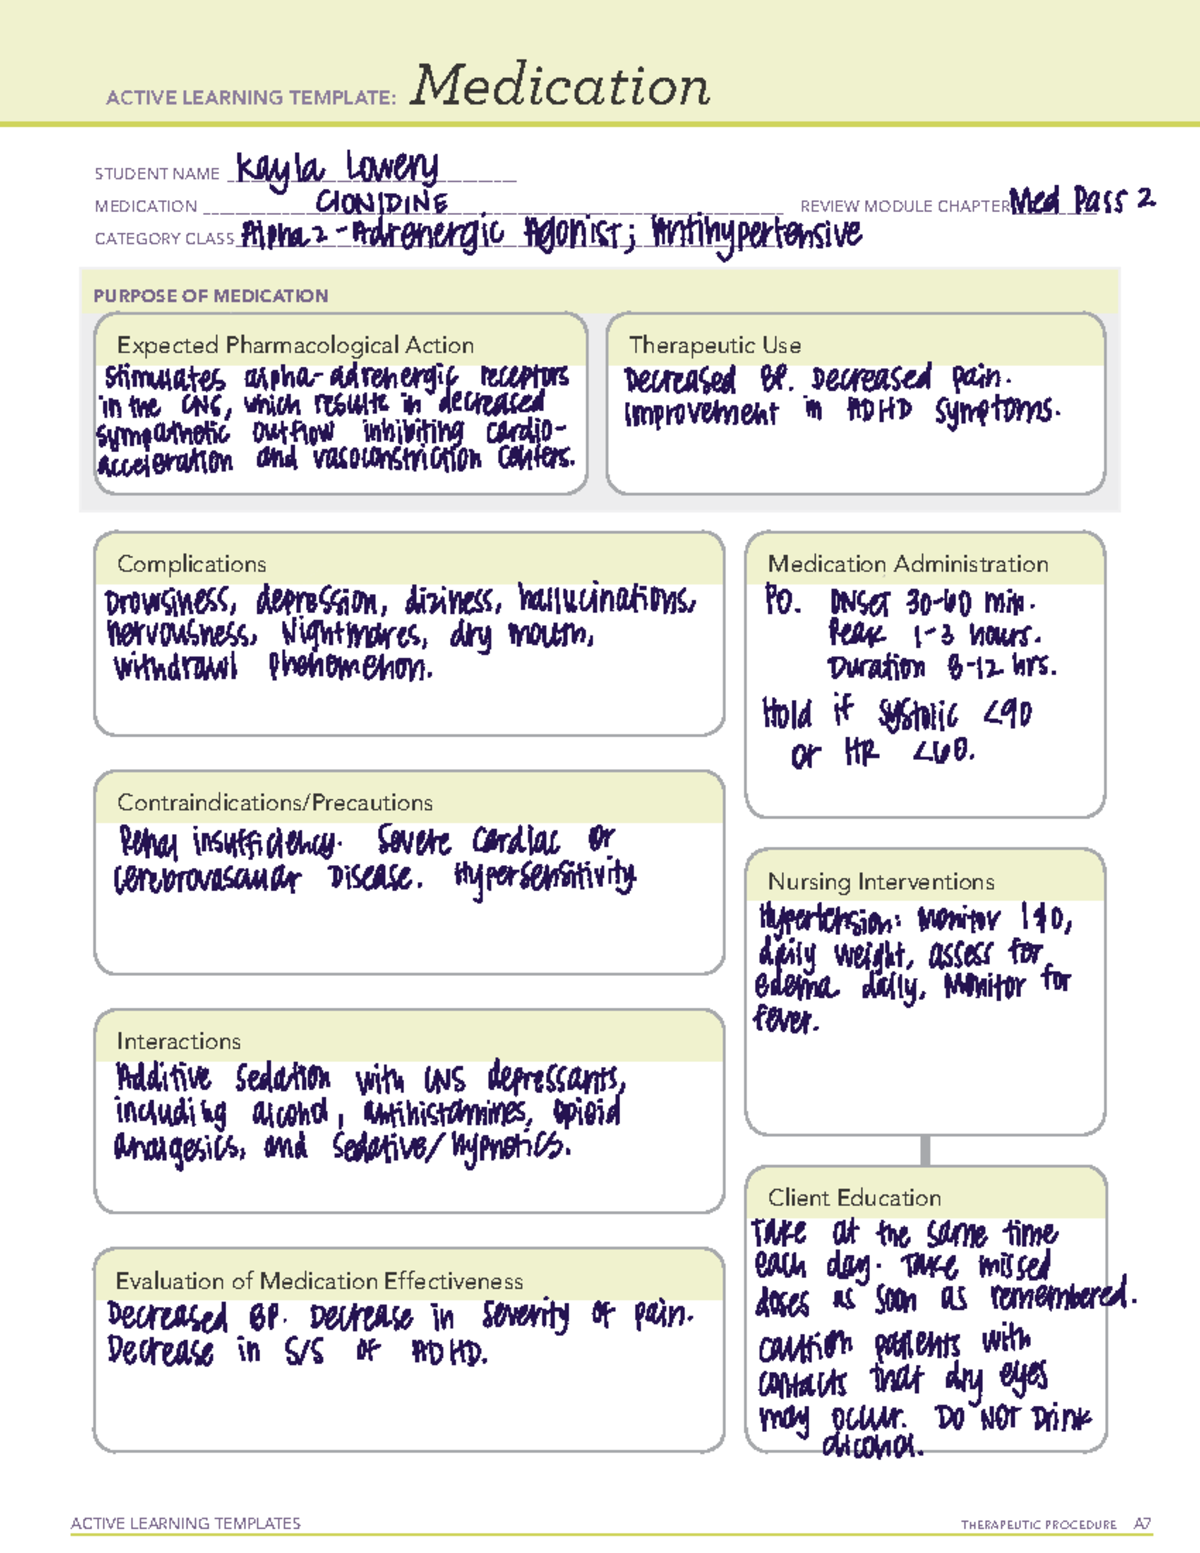 ACTIVE LEARNING TEMPLATE: Medication
STUDENT NAME Kayla Lowery
MEDICATION CLONIDINE REVIEW MODULE CHAPTER Med Pass 2
CATEGORY CLASS Alpha 2 - Adrenergic Agonist; Antihypertensive
PURPOSE OF MEDICATION
Expected Pharmacological Action
Stimulates alpha-adrenergic receptors
in the CNS, which results in decreased
sympathetic outflow inhibiting cardio-
acceleration and vasoconstriction centers.
Therapeutic Use
Decreased BP. Decreased pain.
Improvement in ADHD symptoms.
Complications
Drowsiness, depression, diziness, hallucinations,
nervousness, Nightmares, dry mouth,
withdrawl phenomenon.
Medication Administration
PO. ONSET 30-60 min.
Peak 1-3 hours.
Duration 8-12 hrs.
Hold if systolic <90
or HR <60.
Contraindications/Precautions
Renal insufficiency. Severe cardiac or
cerebrovascular Disease. Hypersensitivity
Nursing Interventions
Hypertension: Monitor I&O,
daily weight, assess for
edema daily, Monitor for
fever.
Interactions
Additive sedation with CNS depressants,
including alcohol, antihistamines, opioid
analgesics, and sedative/hypnotics.
Client Education
Take at the same time
each day. Take missed
doses as soon as remembered.
caution patients with
contacts that dry eyes
may occur. DO NOT Drink
alcohol.
Evaluation of Medication Effectiveness
Decreased BP. Decrease in severity of pain.
Decrease in S/S of ADHD.
ACTIVE LEARNING TEMPLATES THERAPEUTIC PROCEDURE A7